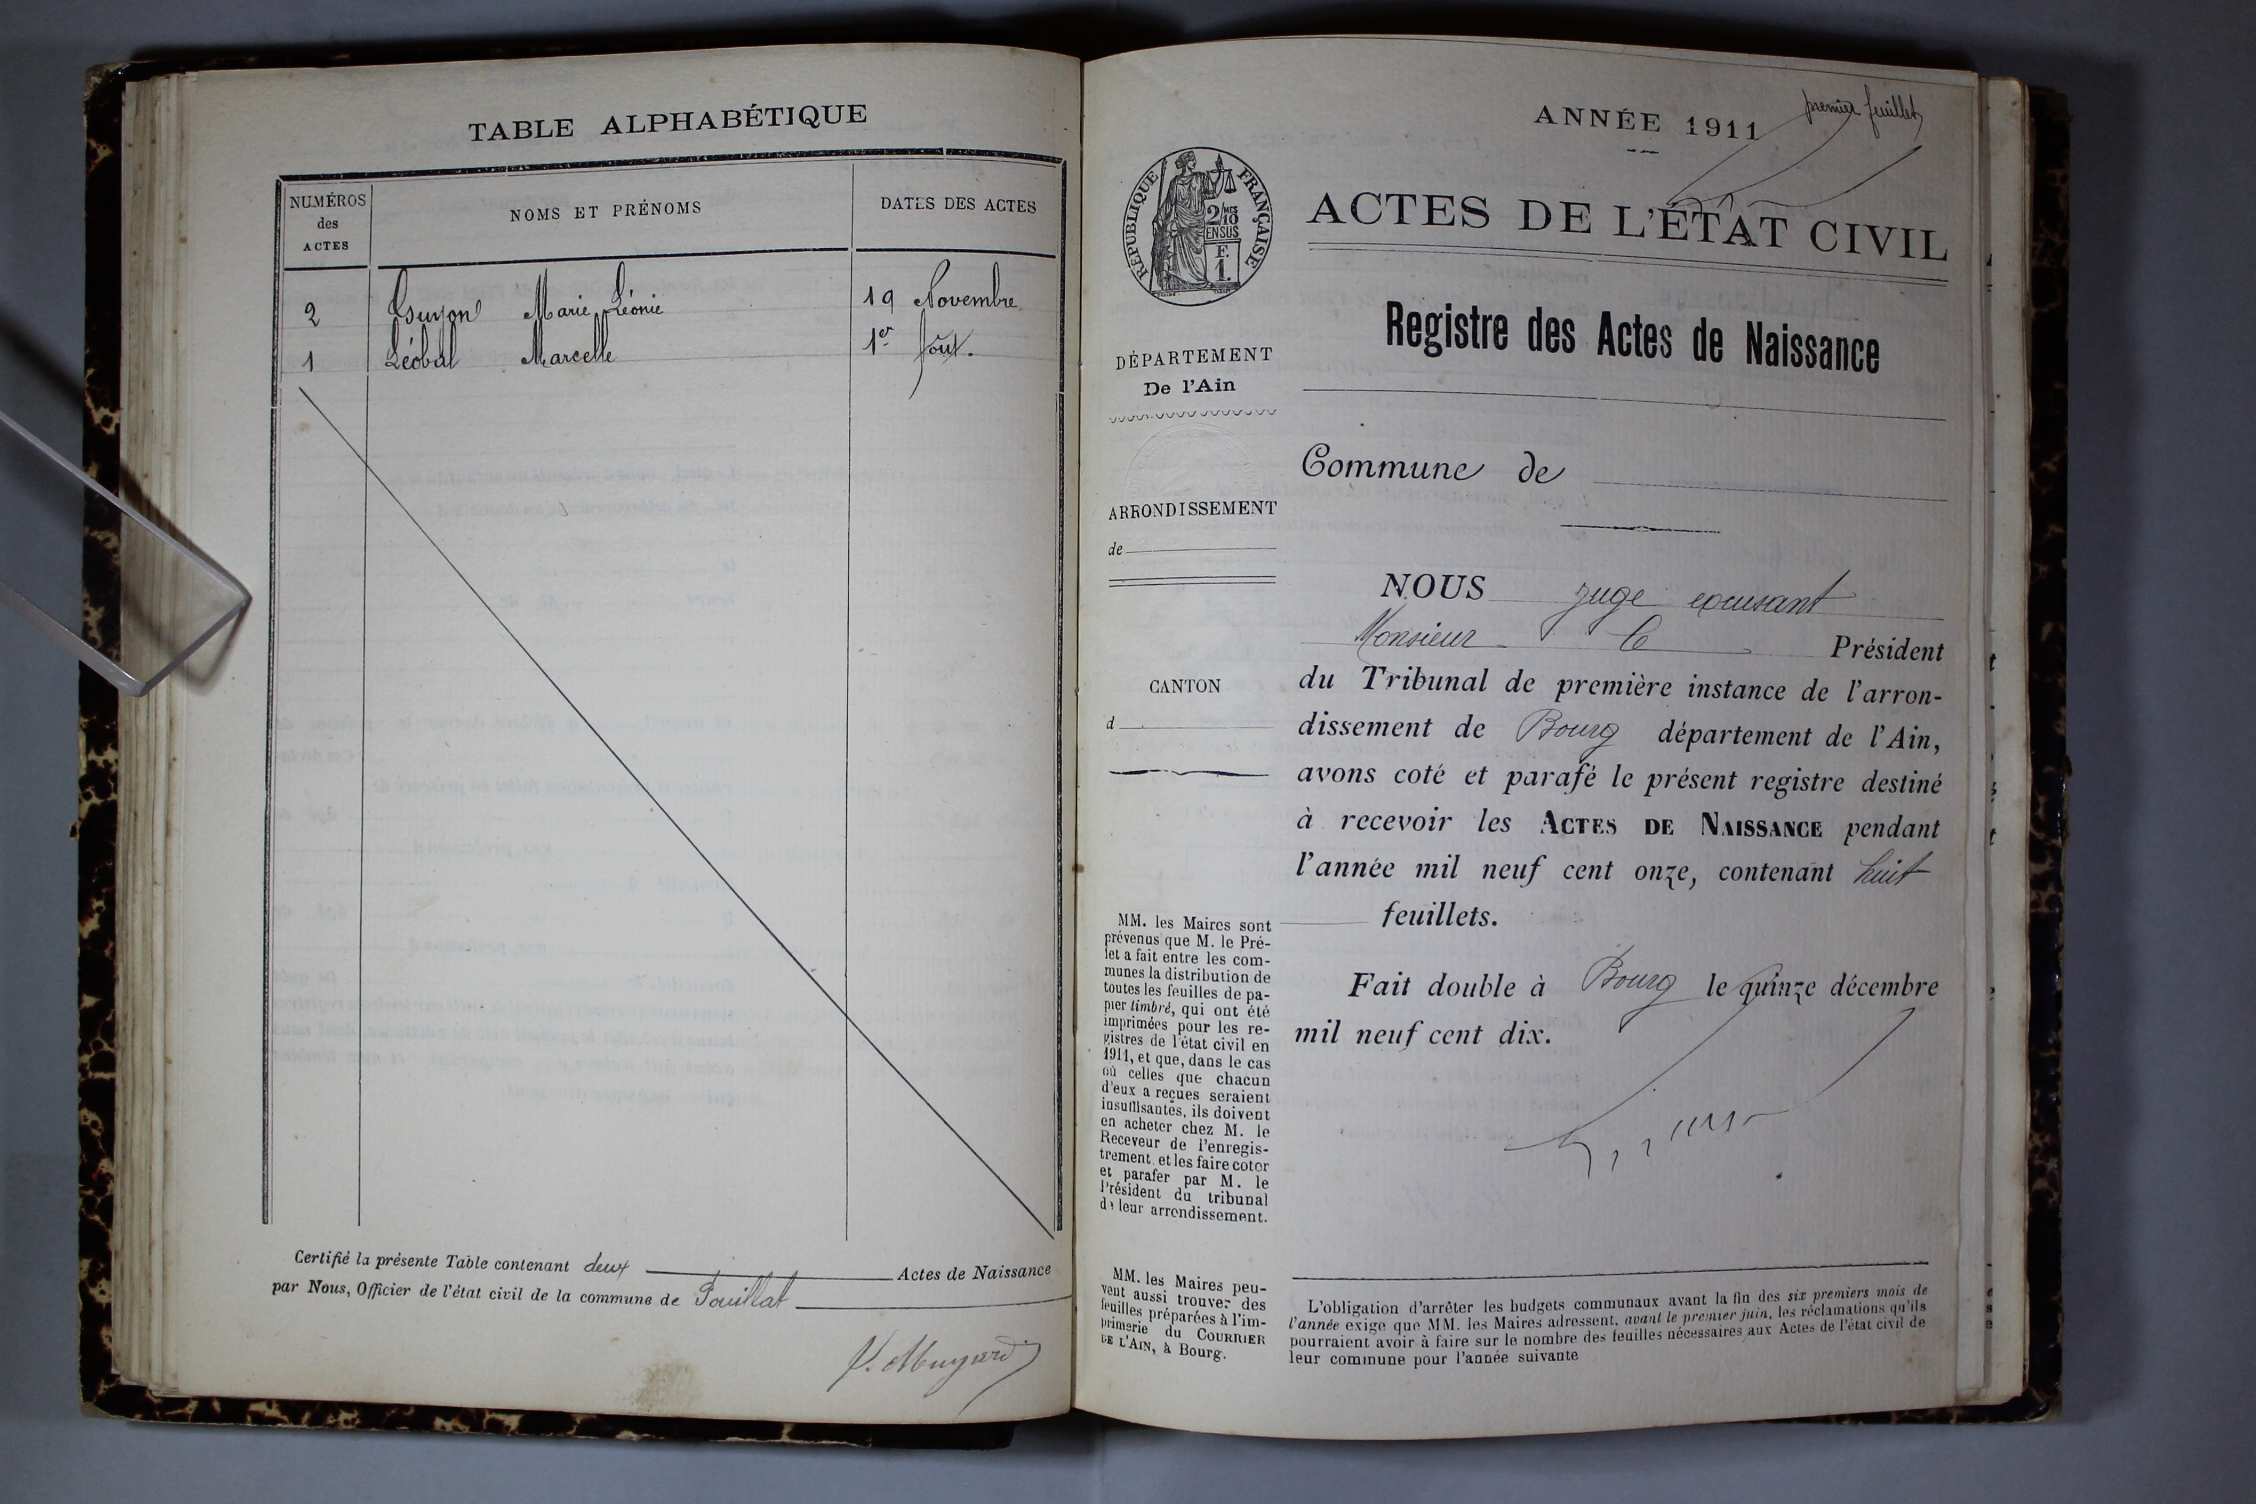 TABLE ALPHABÉTIQUE
NUMÉROS
des
ACTES
NOMS ET PRÉNOMS
DATES DES ACTES
2 Guyon Marie Léonie 19 Novembre
1 Léobal Marcelle 1er Août.
Certifié la présente Table contenant deux Actes de Naissance
par Nous, Officier de l'état civil de la commune de Pouillat
premier feuillet
ANNÉE 1911
RÉPUBLIQUE FRANÇAISE
2/MES
10
EN SUS
F.
1.
ACTES DE L'ÉTAT CIVIL
Registre des Actes de Naissance
DÉPARTEMENT
De l'Ain
ARRONDISSEMENT
de
CANTON
d
MM. les Maires sont
prévenus que M. le Pré-
fet a fait entre les com-
munes la distribution de
toutes les feuilles de pa-
pier timbré, qui ont été
imprimées pour les re-
gistres de l'état civil en
1911, et que, dans le cas
où celles que chacun
d'eux a reçues seraient
insuffisantes, ils doivent
en acheter chez M. le
Receveur de l'enregis-
trement et les faire coter
et parafer par M. le
Président du tribunal
de leur arrondissement.
MM. les Maires peu-
vent aussi trouver des
feuilles préparées à l'im-
primerie du COURRIER
DE L'AIN, à Bourg.
Commune de
NOUS juge excusant
Monsieur le Président
du Tribunal de première instance de l'arron-
dissement de Bourg département de l'Ain,
avons coté et parafé le présent registre destiné
à recevoir les ACTES DE NAISSANCE pendant
l'année mil neuf cent onze, contenant huit
feuillets.
Fait double à Bourg le quinze décembre
mil neuf cent dix.
L'obligation d'arrêter les budgets communaux avant la fin des six premiers mois de
l'année exige que MM. les Maires adressent, avant le premier juin, les réclamations qu'ils
pourraient avoir à faire sur le nombre des feuilles nécessaires aux Actes de l'état civil de
leur commune pour l'année suivante